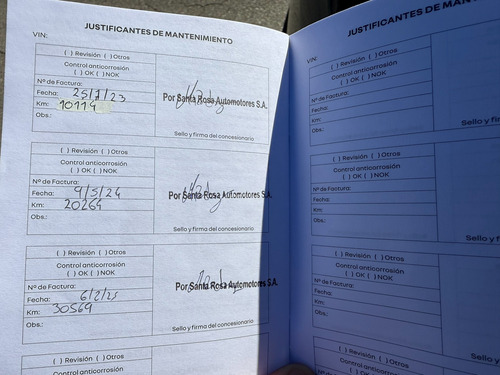 JUSTIFICANTES DE MANTENIMIENTO
VIN:
( ) Revisión ( ) Otros
Control anticorrosión
( ) OK ( ) NOK
Nº de Factura:
Fecha: 25/7/23
Km: 10114
Obs.:
Por Santa Rosa Automotores S.A.
Sello y firma del concesionario
( ) Revisión ( ) Otros
Control anticorrosión
( ) OK ( ) NOK
Nº de Factura:
Fecha: 9/5/24
Km: 20264
Obs.:
Por Santa Rosa Automotores S.A.
Sello y firma del concesionario
( ) Revisión ( ) Otros
Control anticorrosión
( ) OK ( ) NOK
Nº de Factura:
Fecha: 6/2/25
Km: 30569
Obs.:
Por Santa Rosa Automotores S.A.
Sello y firma del concesionario
( ) Revisión ( ) Otros
Control anticorrosión
JUSTIFICANTES DE MAN
VIN:
( ) Revisión ( ) Otros
Control anticorrosión
( ) OK ( ) NOK
Nº de Factura:
Fecha:
Km:
Obs.:
Sello y fi
( ) Revisión ( ) Otros
Control anticorrosión
( ) OK ( ) NOK
Nº de Factura:
Fecha:
Km:
Obs.:
Sello y f
( ) Revisión ( ) Otros
Control anticorrosión
( ) OK ( ) NOK
Nº de Factura:
Fecha:
Km:
Obs.:
Sello y
( ) Revisión ( ) Otros
Control anticorrosión
( ) OK ( ) NOK